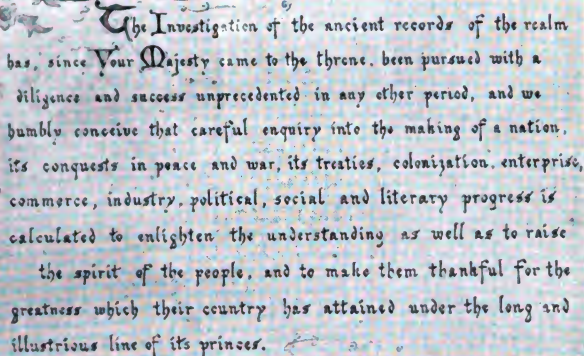 The Investigation of the ancient records of the realm
has, since Your Majesty came to the throne, been pursued with a
diligence and success unprecedented in any other period, and we
humbly conceive that careful enquiry into the making of a nation,
its conquests in peace and war, its treaties, colonization, enterprise,
commerce, industry, political, social and literary progress is
calculated to enlighten the understanding as well as to raise
the spirit of the people, and to make them thankful for the
greatness which their country has attained under the long and
illustrious line of its princes.